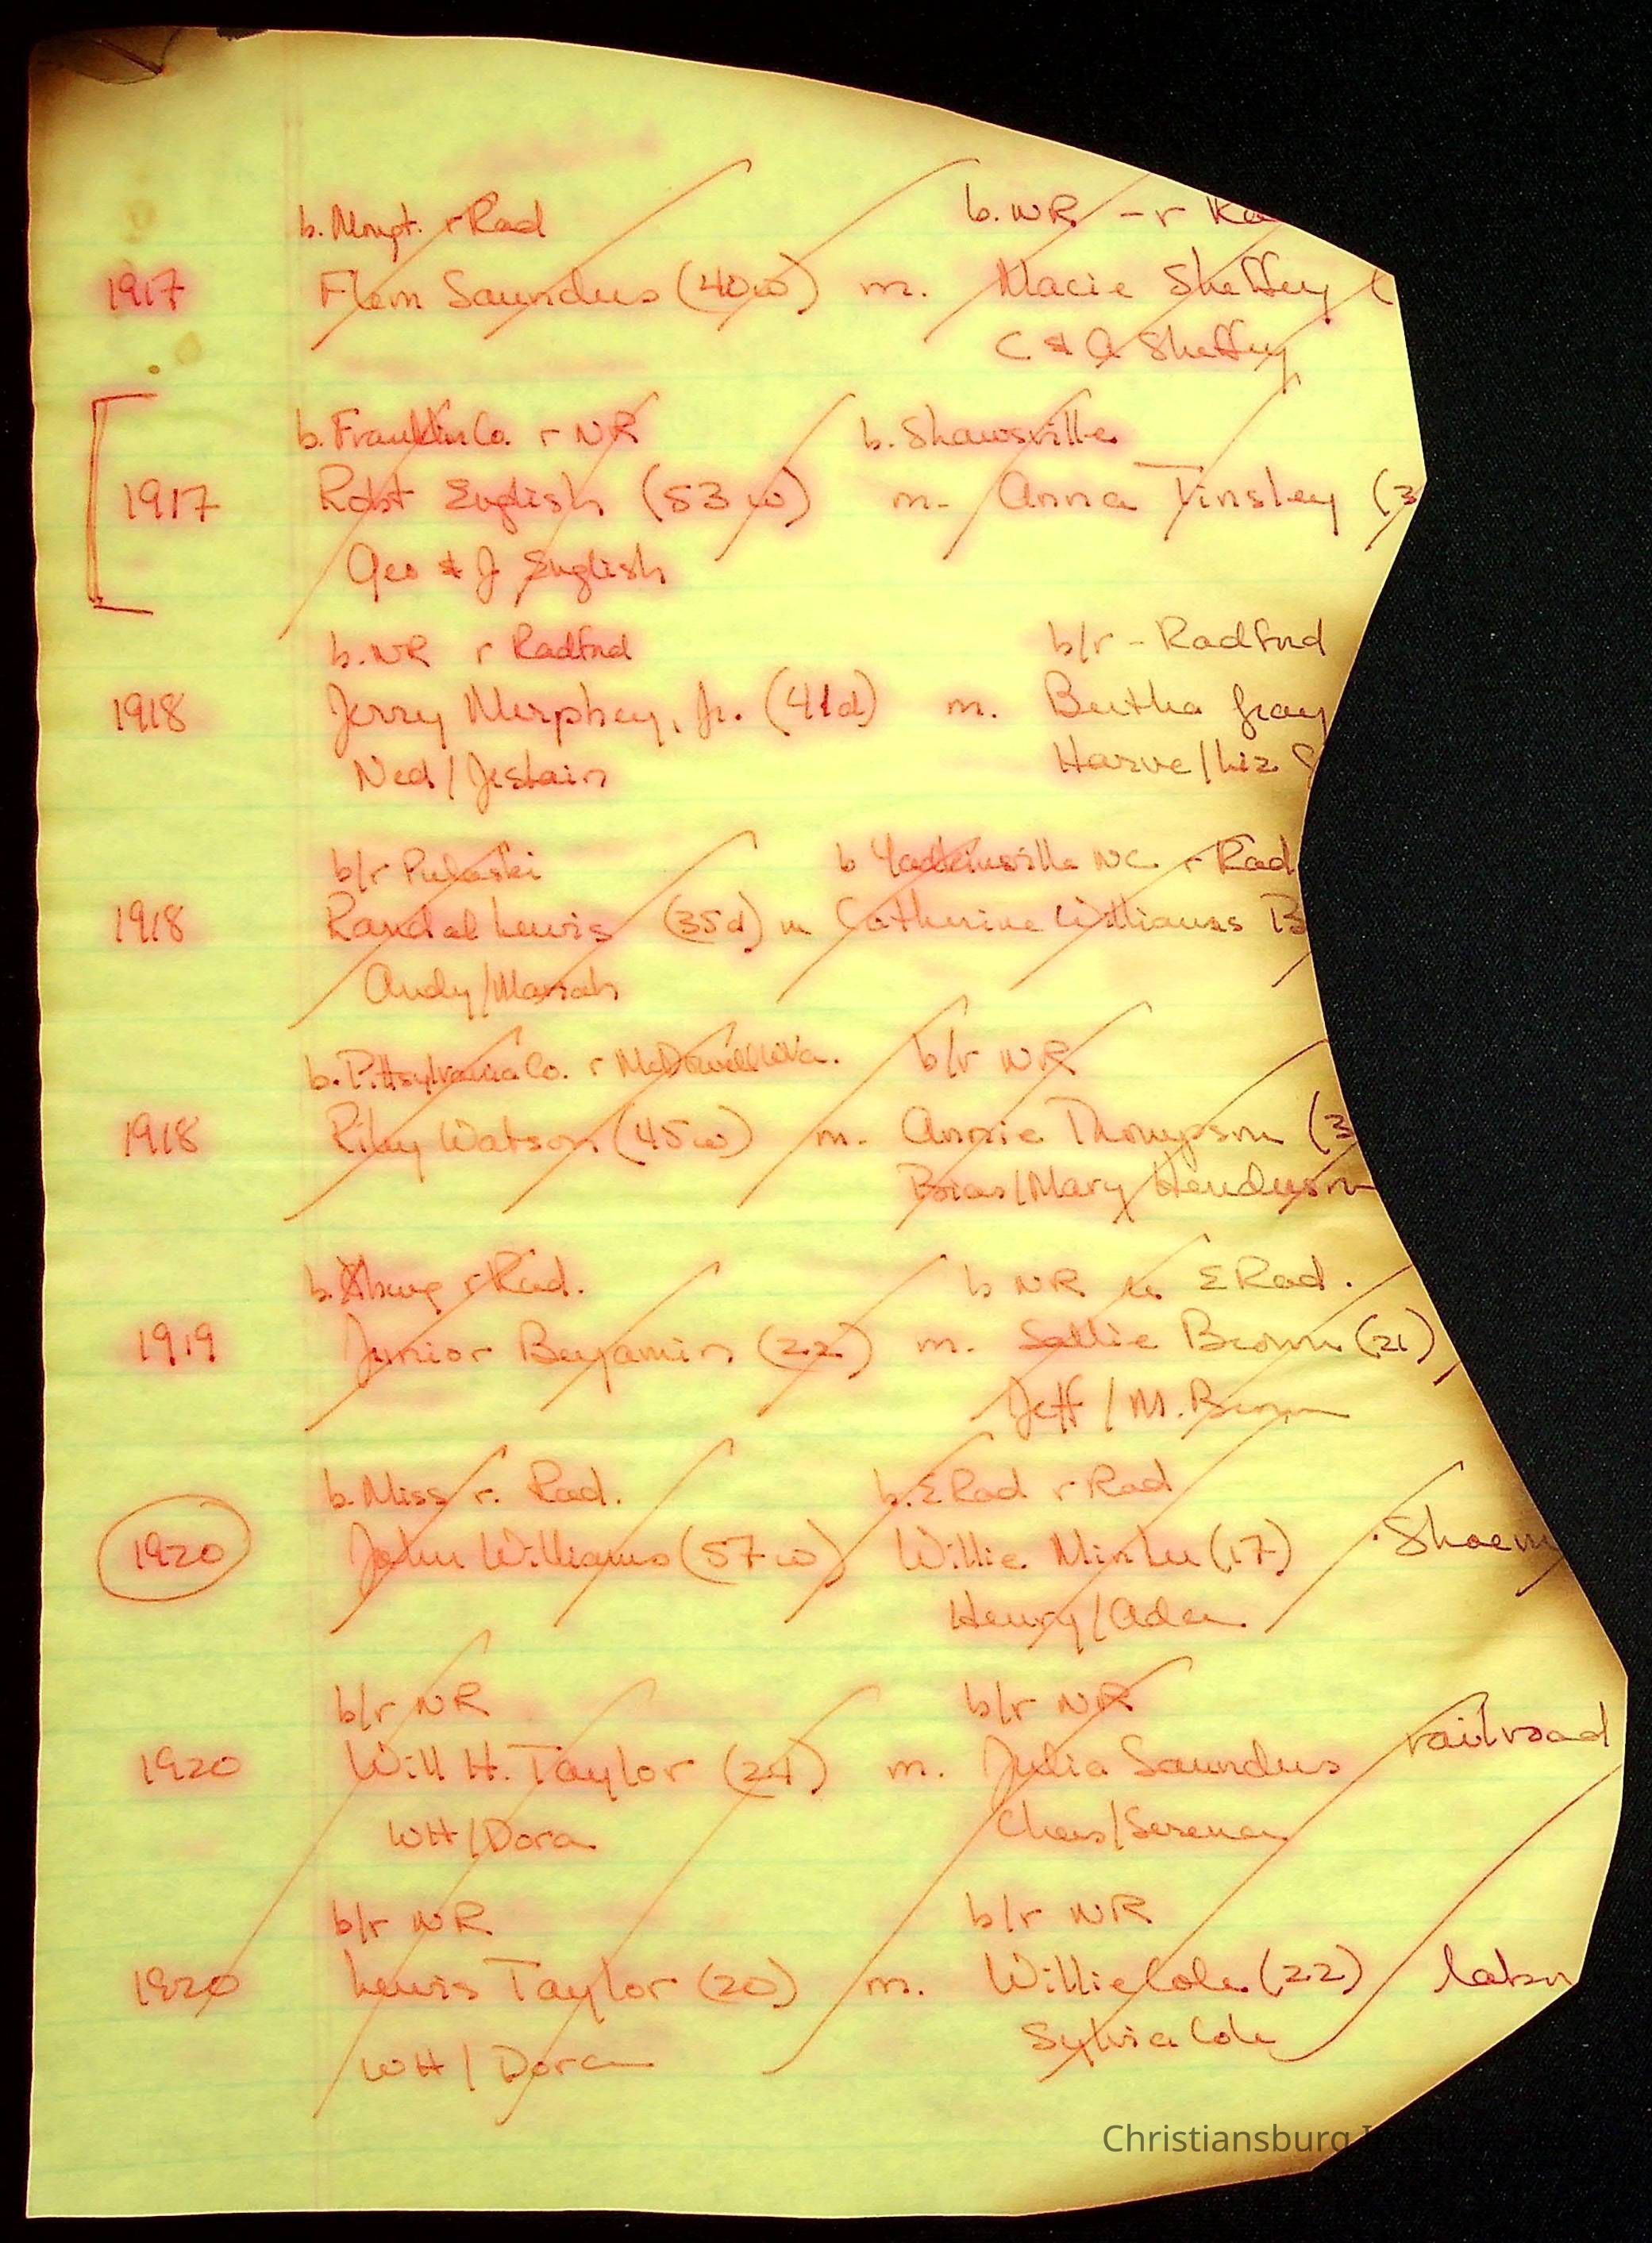 b. Mongt. r Rad b. NR - r
1917 Flem Saunders (40w) m. Macie Sheffey (
C & A Sheffey
b. Franklin Co. r NR b. Shawsville
1917 Robt English (53 w) m. Anna Tinsley (3
Geo & J English
b. NR r Radford b/r - Radford
1918 Jerry Murphey, Jr. (41d) m. Bertha Gray
Ned / Harve/Liz
b/r Pulaski b Yadkinsville NC r Rad
1918 Randal Lewis (35d) m Catherine Williams B
Andy/Mariah
b. Pittsylvania Co. r McDowell b/r NR
1918 Riley Watson (45w) m. Annie Thompson (3
Mary Henderson
b. Xburg r Rad. b NR E Rad.
1919 Junior Benjamin (22) m. Sallie Brown (21)
Jeff / M. Brown
b. Miss r. Rad. b. E Rad r Rad
1920 John Williams (57 w) Willie (17) Shoem
Henry/Ada
b/r NR b/r NR
railroad
1920 Will H. Taylor (24) m. Julia Saunders
WH/Dora Chas/Serena
b/r NR b/r NR
1920 Lewis Taylor (20) m. Willie Cole (22) labor
WH / Dora Sylvia Cole
Christiansburg